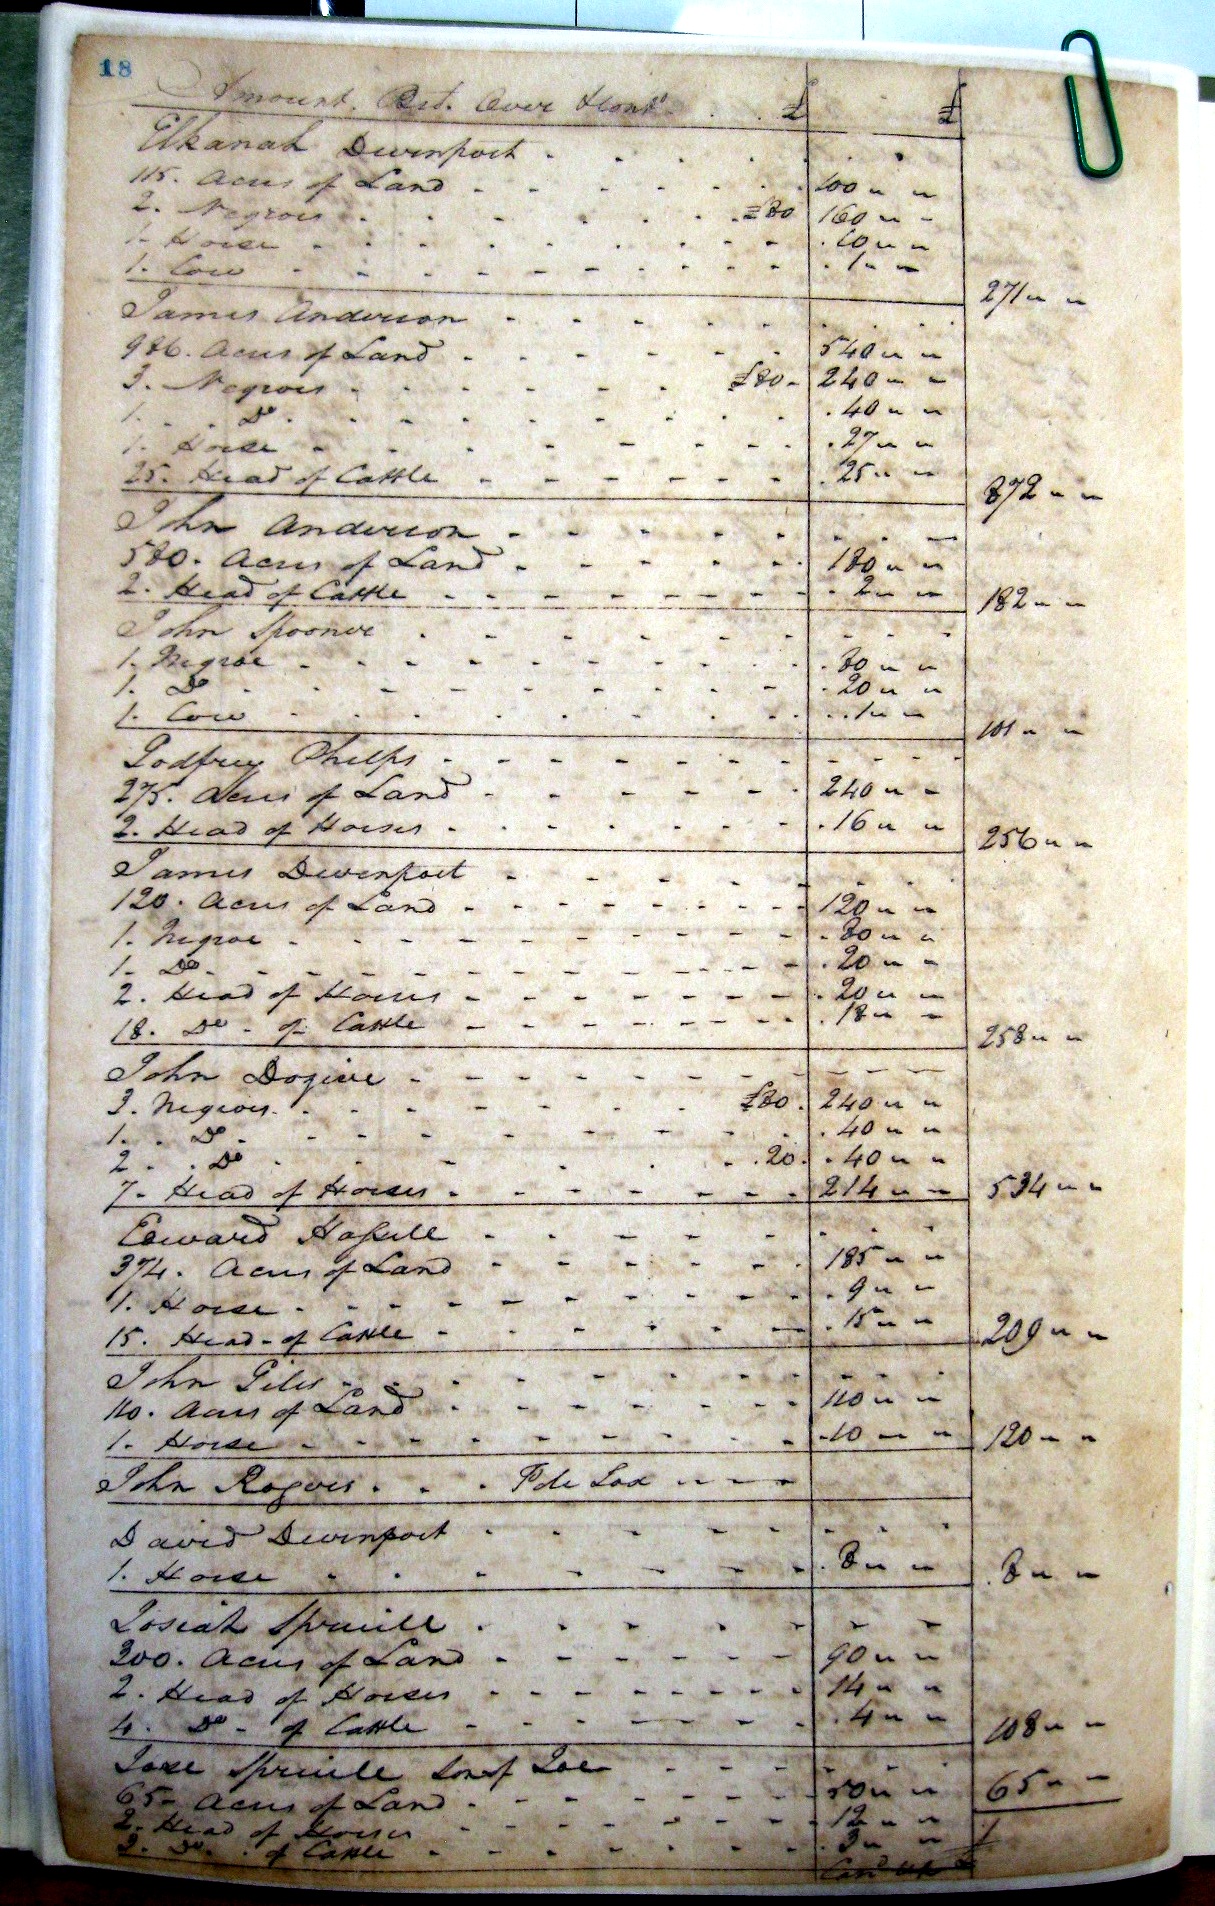 18
Amount. Bot. Over £ £
Elkanah Devenport
115. Acres of Land 100 " "
2. Negroes £80 160 " "
1. Horse 10 " "
1. Cow 1 " " 271 " "
James Anderson
986. Acres of Land 540 " "
3. Negroes £80 240 " "
1. Do 40 " "
1. Horse 27 " "
25. Head of Cattle 25 " " 872 " "
John Anderson
580. Acres of Land 180 " "
2. Head of Cattle 2 " " 182 " "
John Spooner
1. Negroe 80 " "
1. Do 20 " "
1. Cow 1 " " 101 " "
Godfrey Phelps
275. Acres of Land 240 " "
2. Head of Horses 16 " " 256 " "
James Devenport
120. Acres of Land 120 " "
1. Negroe 80 " "
1. Do 20 " "
2. Head of Horses 20 " "
18. Do of Cattle 18 " " 258 " "
John
3. Negroes £80 240 " "
1. Do 40 " "
2. Do 20 40 " "
7. Head of Horses 214 " " 534 " "
Edward Hassell
374. Acres of Land 185 " "
1. Horse 9 " "
15. Head of Cattle 15 " " 209 " "
John Giles
110. Acres of Land 110 " "
1. Horse 10 " " 120 " "
John Rogers
David Devenport
1. Horse 8 " " 8 " "
Josiah Spruill
300. Acres of Land 90 " "
2. Head of Horses 14 " "
4. Do of Cattle 4 " " 108 " "
Spruill Son of Joe
65. Acres of Land 50 " " 65 " "
2. Head of Horses 12 " "
3. Do of Cattle 3 " "
£